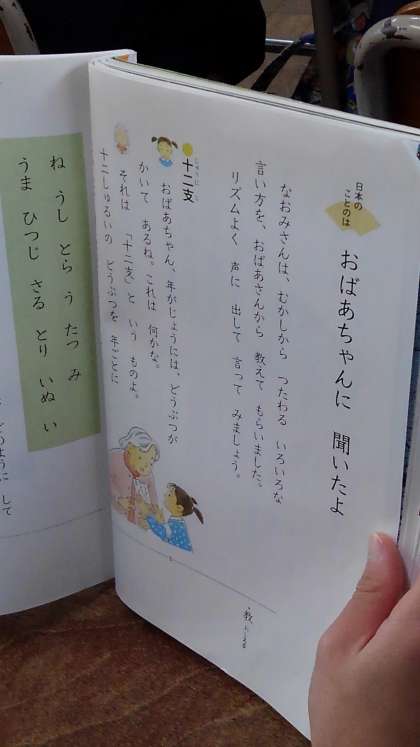 日本の
ことのは
おばあちゃんに 聞いたよ
なおみさんは、むかしから つたわる いろいろな
言い方を、おばあさんから 教えて もらいました。
リズムよく 声に 出して 言って みましょう。
十二支
おばあちゃん、年がじょうには、どうぶつが
かいて あるね。これは 何かな。
それは 「十二支」と いう ものよ。
十二しゅるいの どうぶつを 年ごとに
ね うし とら う たつ み
うま ひつじ さる とり いぬ い